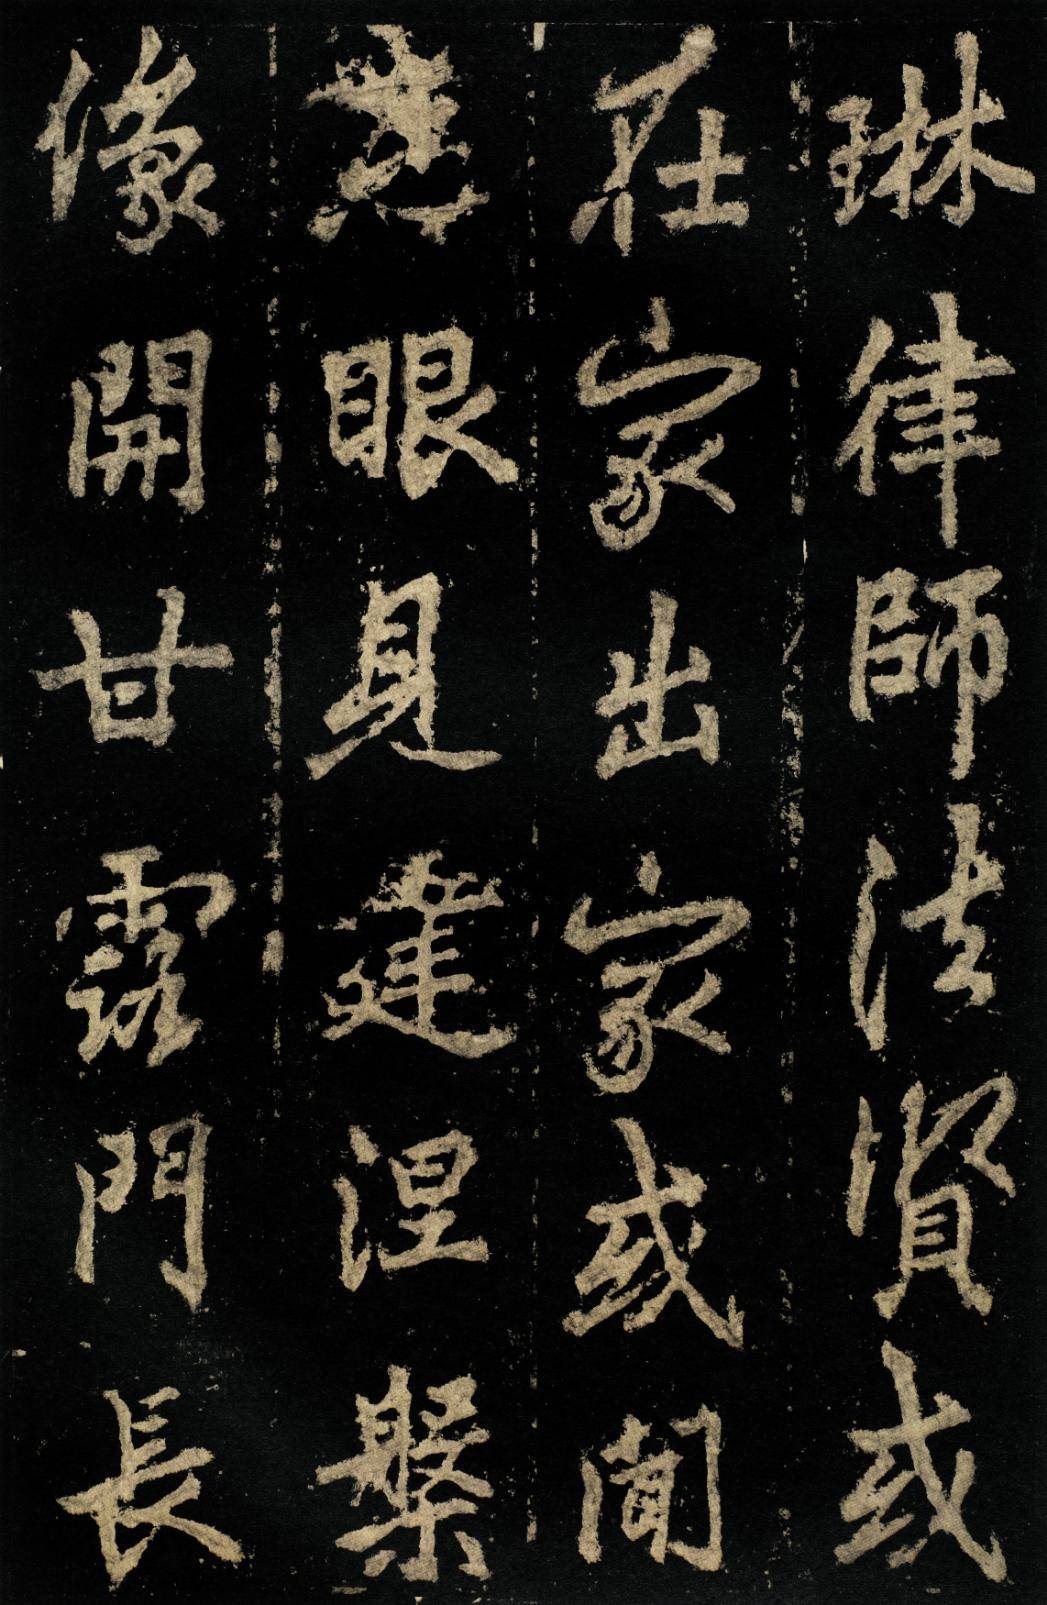 琳律師法賢或
在家出家或聞
眼見建涅槃
像開甘露門長